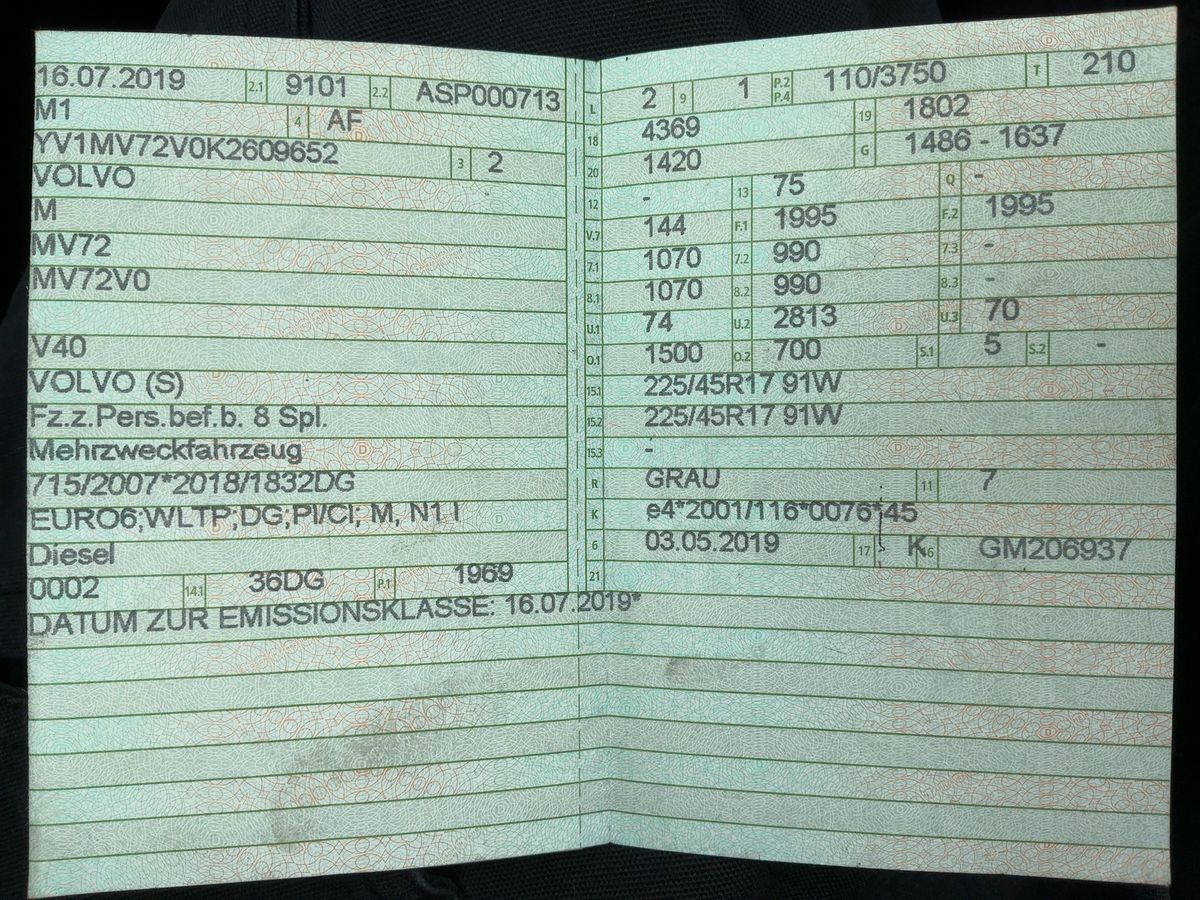 16.07.2019 2.1 9101 2.2 ASP000713
M1 4 AF
YV1MV72V0K2609652 3 2
VOLVO
M
MV72
MV72V0
V40
VOLVO (S)
Fz.z.Pers.bef.b. 8 Spl.
Mehrzweckfahrzeug
715/2007*2018/1832DG
EURO6;WLTP;DG;PI/CI; M, N1 I
Diesel
0002 14.1 36DG P.1 1969
DATUM ZUR EMISSIONSKLASSE: 16.07.2019*
L 2 9 1 P.2 P.4 110/3750 T 210
18 4369 19 1802
20 1420 G 1486 - 1637
12 - 13 75 Q -
V.7 144 F.1 1995 F.2 1995
7.1 1070 7.2 990 7.3 -
8.1 1070 8.2 990 8.3 -
U.1 74 U.2 2813 U.3 70
O.1 1500 O.2 700 S.1 5 S.2 -
15.1 225/45R17 91W
15.2 225/45R17 91W
15.3 -
R GRAU 11 7
K e4*2001/116*0076*45
6 03.05.2019 17 K 16 GM206937
21